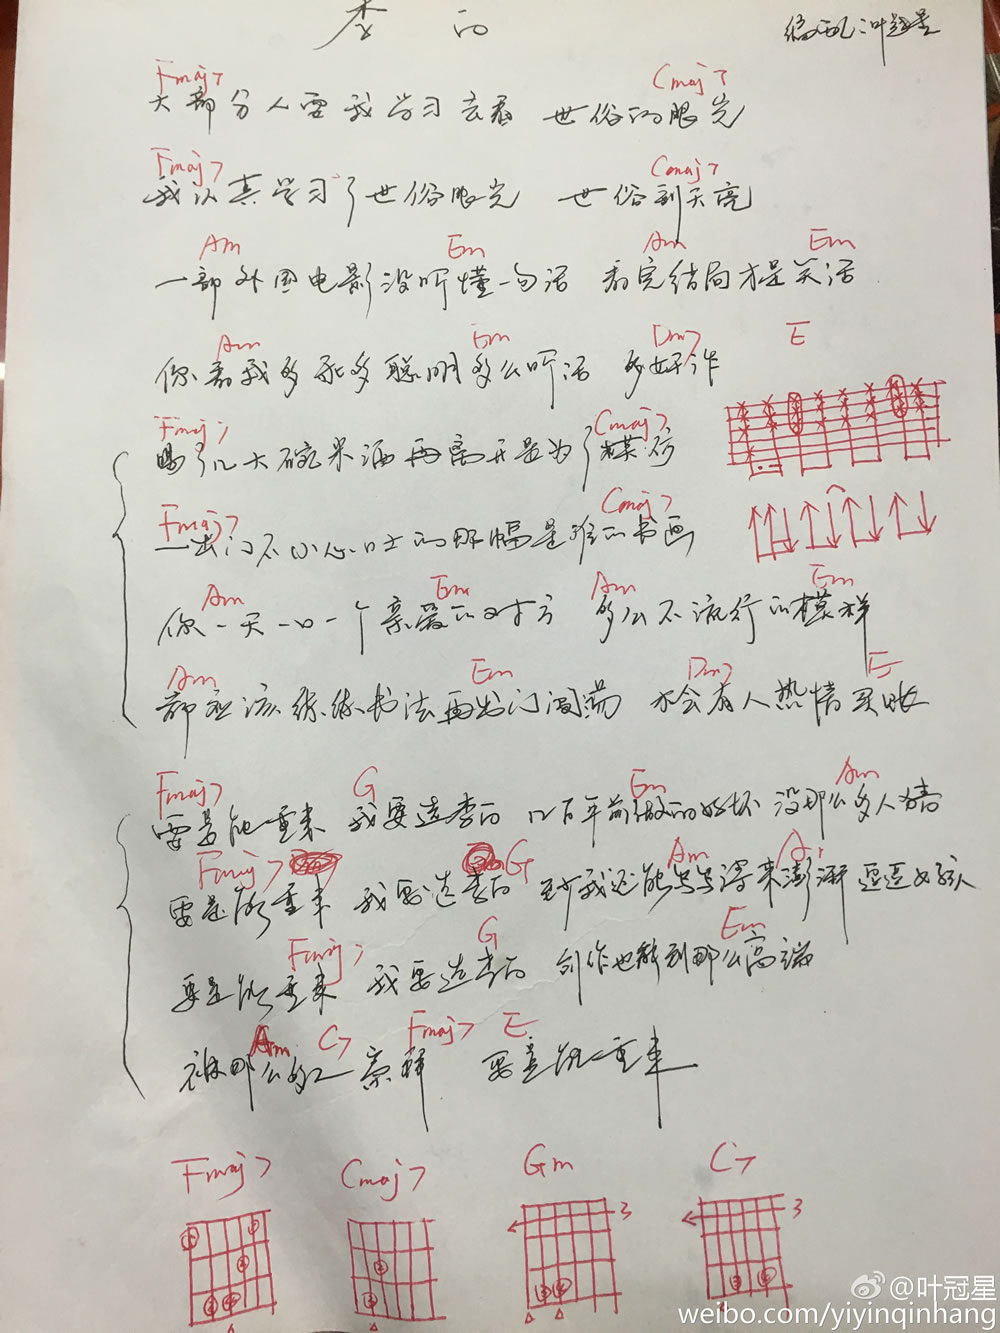 李白
编配:叶冠星
Fmaj7 Cmaj7
大部分人要我学习去看 世俗的眼光
Fmaj7 Cmaj7
我认真学习了世俗眼光 世俗到天亮
Am Em Am Em
一部外国电影没听懂一句话 看完结局才是笑话
Am Em Dm7 E
你看我多乖多聪明多么听话 多奸诈
Fmaj7 Cmaj7
喝了几大碗米酒再离开是为了模仿
Fmaj7 Cmaj7
一出门不小心吐的那幅是谁的书画
Am Em Am Em
你一天一口一个亲爱的对方 多么不流行的模样
Am Em Dm7 E
都应该练练书法再出门闯荡 才会有人热情买账
Fmaj7 G Em Am
要是能重来 我要选李白 几百年前做的好坏 没那么多人猜
Fmaj7 G Am
要是能重来 我要选李白 至少我还能写写诗来澎湃 逗逗女孩
Fmaj7 G Em
要是能重来 我要选李白 创作也能到那么高端
Am C7 Fmaj7 E
被那么多人崇拜 要是能重来
Fmaj7 Cmaj7 Gm C7
3 3
@叶冠星
weibo.com/yiyinqinhang